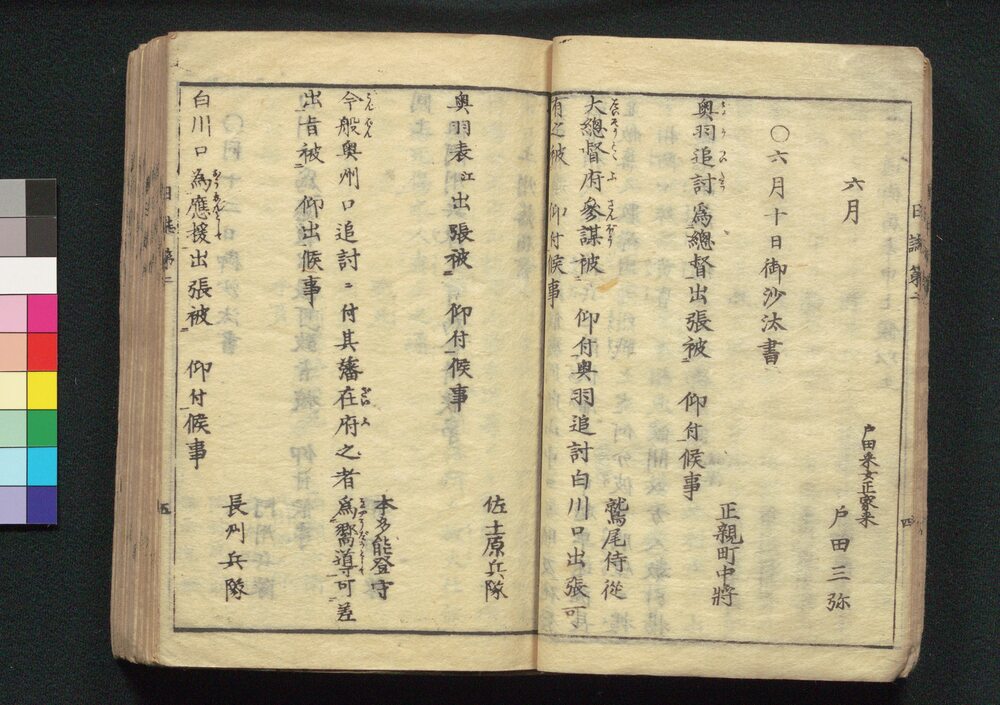 六月
戸田釆女正家来
戸田三弥
〇六月十日御沙汰書
正親町中將
奥羽追討爲總督出張被 仰付候事
鷲尾侍從
大總督府參謀被 仰付奥羽追討白川口出張可
有之被 仰付候事
佐土原兵隊
奥羽表江出張被 仰付候事
本多能登守
今般奥州口追討ニ付其藩在府之者爲嚮導可差
出旨被 仰出候事
長州兵隊
白川口為應援出張被 仰付候事
日誌第二
四
日誌第二
五